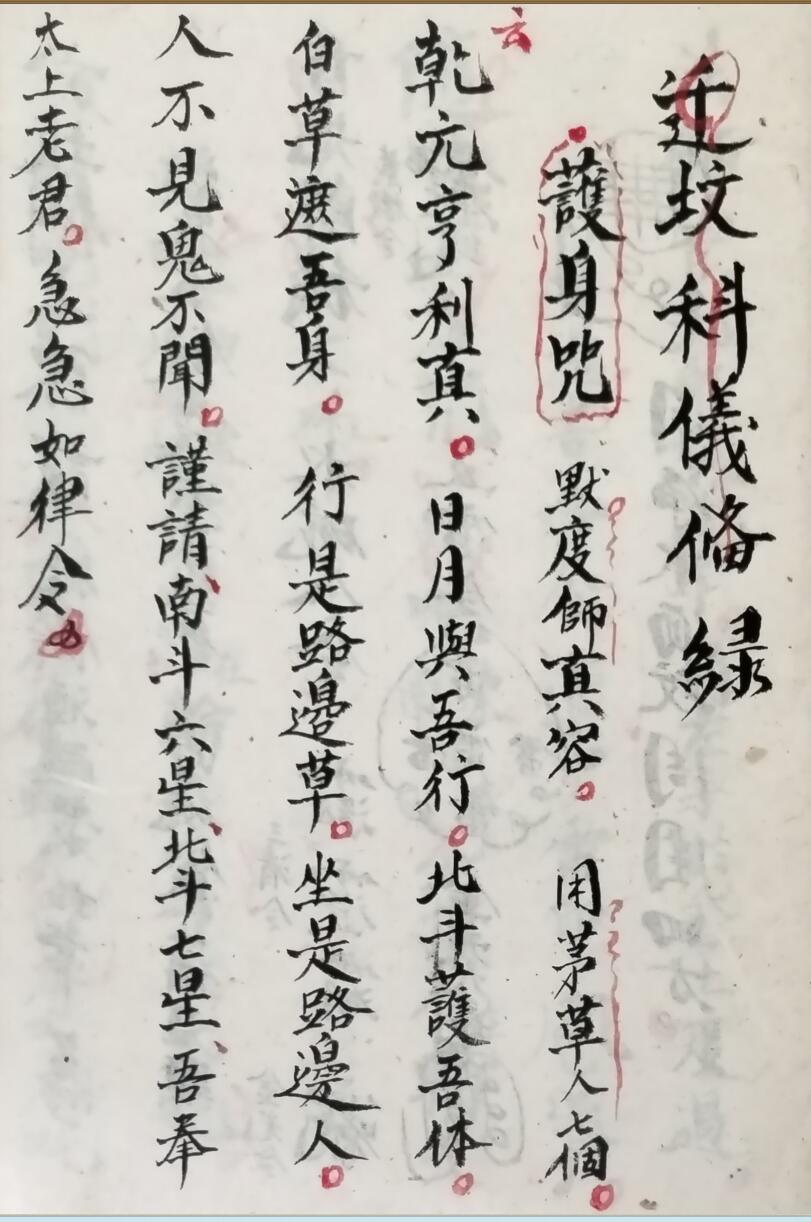 迁坟科儀俻綠
護身咒 默度師真容 用茅草人七個
云
乾亢亨利真 日月與吾行 北斗護吾体
白草遮吾身 行是路邊草 坐是路邊人
人不見鬼不聞 謹請南斗六星北斗七星吾奉
太上老君急急如律令